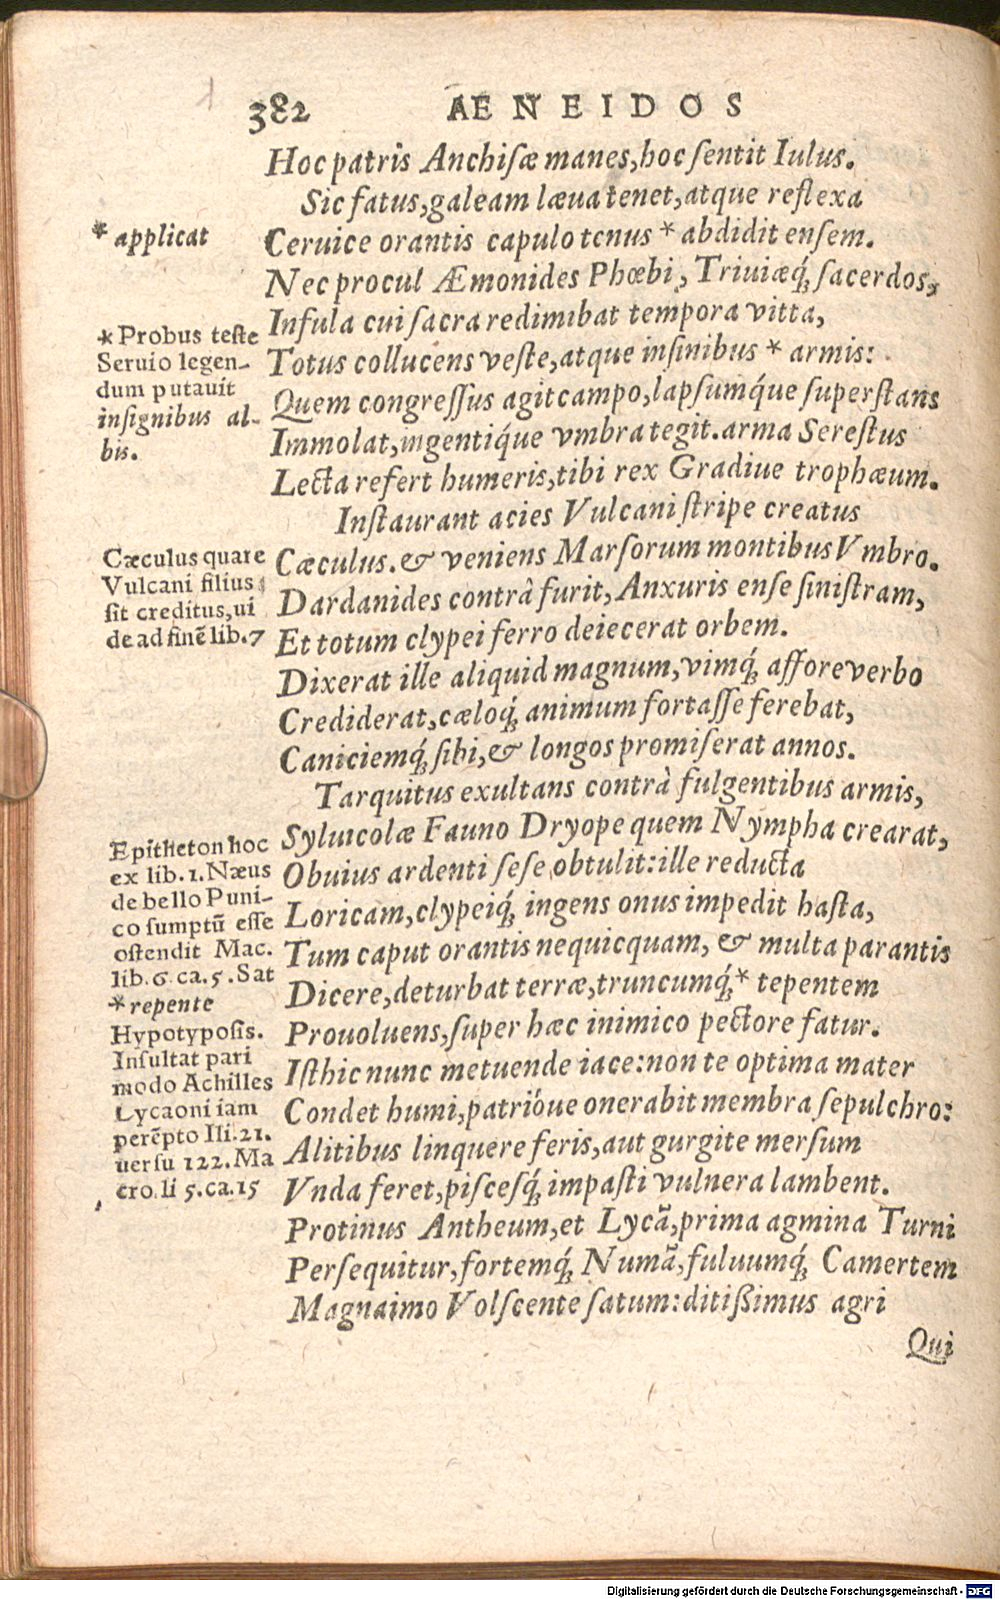 382 AENEIDOS
Hoc patris Anchisæ manes, hoc sentit Iulus.
Sic fatus, galeam læua tenet, atque reflexa
* applicat
Ceruice orantis capulo tenus * abdidit ensem.
Nec procul Æmonides Phœbi, Triuiæq́; sacerdos,
Infula cui sacra redimibat tempora vitta,
Totus collucens veste, atque insinibus * armis:
Quem congressus agit campo, lapsumq́ue superstans
Immolat, ingentiq́ue vmbra tegit. arma Serestus
Lecta refert humeris, tibi rex Gradiue trophæum.
* Probus teste
Seruio legen-
dum putauit
insignibus al-
bis.
Instaurant acies Vulcani stripe creatus
Cæculus. & veniens Marsorum montibus Vmbro.
Dardanides contrà furit, Anxuris ense sinistram,
Et totum clypei ferro deiecerat orbem.
Cæculus quare
Vulcani filius
sit creditus, ui
de ad finẽ lib. 7
Dixerat ille aliquid magnum, vimq́; affore verbo
Crediderat, cæloq́; animum fortasse ferebat,
Caniciemq́; sibi, & longos promiserat annos.
Tarquitus exultans contrà fulgentibus armis,
Syluicolæ Fauno Dryope quem Nympha crearat,
Obuius ardenti sese obtulit: ille reducta
Loricam, clypeiq́; ingens onus impedit hasta,
Tum caput orantis nequicquam, & multa parantis
Dicere, deturbat terræ, truncumq́; * tepentem
Prouoluens, super hæc inimico pectore fatur.
Epitheton hoc
ex lib. 1. Næus
de bello Puni-
co sumptũ esse
ostendit Mac.
lib. 6. ca. 5. Sat
* repente
Hypotyposis.
Insultat pari
modo Achilles
Lycaoni iam
perẽpto Ili. 21.
uersu 122. Ma
cro. li 5. ca. 15
Isthic nunc metuende iace: non te optima mater
Condet humi, patrióue onerabit membra sepulchro:
Alitibus linquere feris, aut gurgite mersum
Vnda feret, piscesq́; impasti vulnera lambent.
Protinus Antheum, et Lycã, prima agmina Turni
Persequitur, fortemq́; Numã, fuluumq́; Camertem
Magnaimo Volscente satum: ditißimus agri
Qui
Digitalisierung gefördert durch die Deutsche Forschungsgemeinschaft - DFG